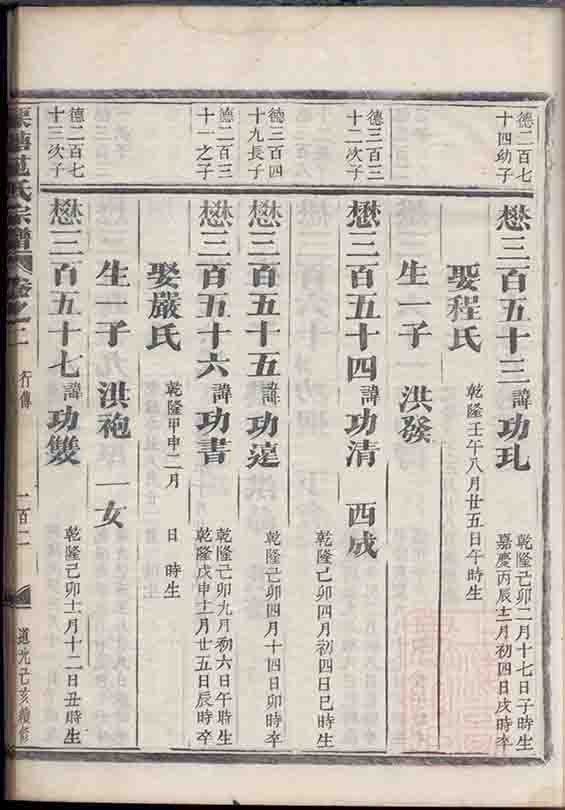 德二百七
十四幼子
懋三百五十三 諱功玌
乾隆己卯二月十七日子時生
嘉慶丙辰士月初四日戌時卒
娶程氏 乾隆壬午八月廿五日午時生
生一子 洪發
德三百三
十二次子
懋三百五十四 諱功清 西成
乾隆己卯四月初四日巳時生
德三百四
十九長子
懋三百五十五 諱功遠
乾隆己卯四月十四日卯時生
德二百三
十一之子
懋三百五十六 諱功書
乾隆己卯九月初六日午時生
乾隆戊申十二月廿五日辰時卒
娶嚴氏 乾隆甲申二月 日 時生
生一子 洪袍 一女
德二百七
十三次子
懋三百五十七 諱功雙
乾隆己卯十一月十二日丑時生
氏宗譜 卷之二 行傳 一百二 道光己亥續修